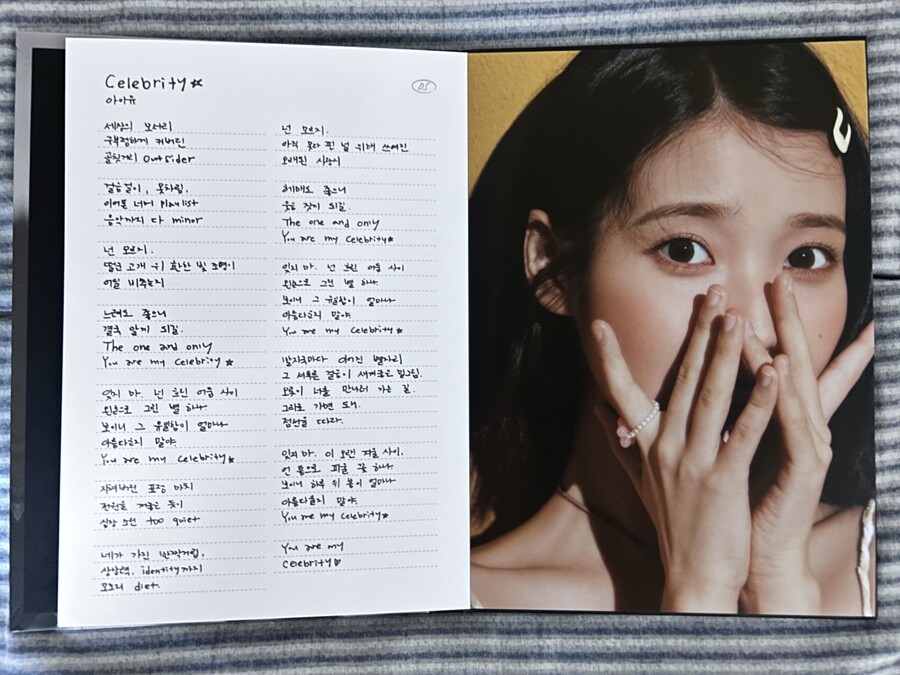 Celebrity☆
아이유
05
세상의 모서리
구부정하게 커버린
골칫거리 outsider
걸음걸이, 옷차림,
이어폰 너머 playlist
음악까지 다 minor
넌 모르지.
떨군 고개 위 환한 빛 조명이
어딜 비추는지
느려도 좋으니
결국 알게 되길.
The one and only
You are my celebrity★
잊지 마. 넌 흐린 어둠 사이
왼손으로 그린 별 하나
보이니 그 유일함이 얼마나
아름다운지 말야.
You are my celebrity★
지쳐버린 표정 마치
전원을 꺼놓은 듯이
심장 소린 too quiet
네가 가진 반짝거림,
상상력, identity까지
모조리 diet
넌 모르지.
아직 못다 핀 널 위해 쓰여진
오래된 사랑시
헤매도 좋으니
웃음 짓게 되길.
The one and only
You are my celebrity★
잊지 마. 넌 흐린 어둠 사이
왼손으로 그린 별 하나.
보이니 그 유일함이 얼마나
아름다운지 말야.
You are my celebrity★
발자국마다 이어진 별자리
그 서투른 걸음이 새겨놓은 밑그림.
오롯이 너를 만나러 가는 길.
그리로 가면 돼.
점선을 따라.
잊지 마. 이 오랜 겨울 사이,
언 틈으로 피울 꽃 하나.
보이니 하루 뒤 봄이 얼마나
아름다울지 말야.
You are my celebrity★
You are my
celebrity♡